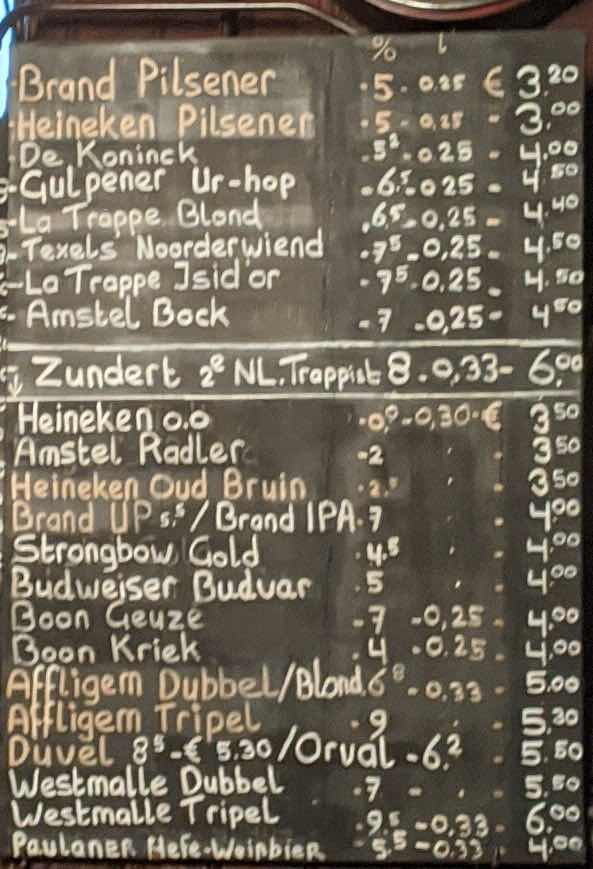 % l
Brand Pilsener · 5 - 0.25 € 3.20
Heineken Pilsener · 5 - 0,25 - 3.00
De Koninck - 5² - 0 25 - 4,00
Gulpener Ur-hop - 6.5 - 0 25 - 4.50
La Trappe Blond . 6.5 - 0,25 - 4.40
Texels Noorderwiend - 7⁵ - 0,25 - 4.50
La Trappe Isid'or - 7⁵ - 0.25 - 4.50
Amstel Bock - 7 - 0,25 - 4⁵⁰
Zundert 2e NL.Trappist 8 - 0,33 - 6,00
Heineken 0.0 · 0,0 - 0,30 - € 3⁵⁰
Amstel Radler - 2 ' - 3⁵⁰
Heineken Oud Bruin · 2.5 - 3⁵⁰
Brand UP 5.5 / Brand IPA · 7 - 4.00
Strongbow Gold · 4.5 ' - 4.00
Budweiser Budvar . 5 ' - 4.00
Boon Geuze - 7 - 0,25 - 4.00
Boon Kriek . 4 - 0.25 - 4,00
Affligem Dubbel/Blond. 6⁸ - 0,33 - 5.00
Affligem Tripel - 9 ' - 5.30
Duvel 8⁵ - € 5.30 / Orval - 6.² - 5.50
Westmalle Dubbel - 7 - ' - 5.50
Westmalle Tripel - 9.5 - 0,33 - 6.00
Paulaner Hefe-Weinbier - 5.5 - 0.33 - 4.00